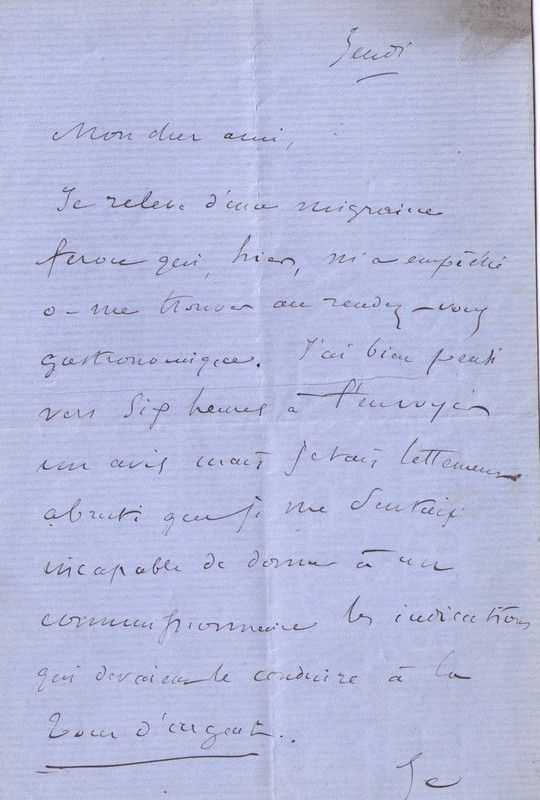 Jeudi
Mon cher ami,
Je relève d'une migraine
féroce qui, hier, m'a empêché
de me trouver au rendez-vous
gastronomique. J'ai bien pensé
vers six heures à t'envoyer
un avis mais j'étais tellement
abruti que je me sentais
incapable de donner à un
commissionnaire les indications
qui devaient le conduire à la
Tour d'argent..
Je